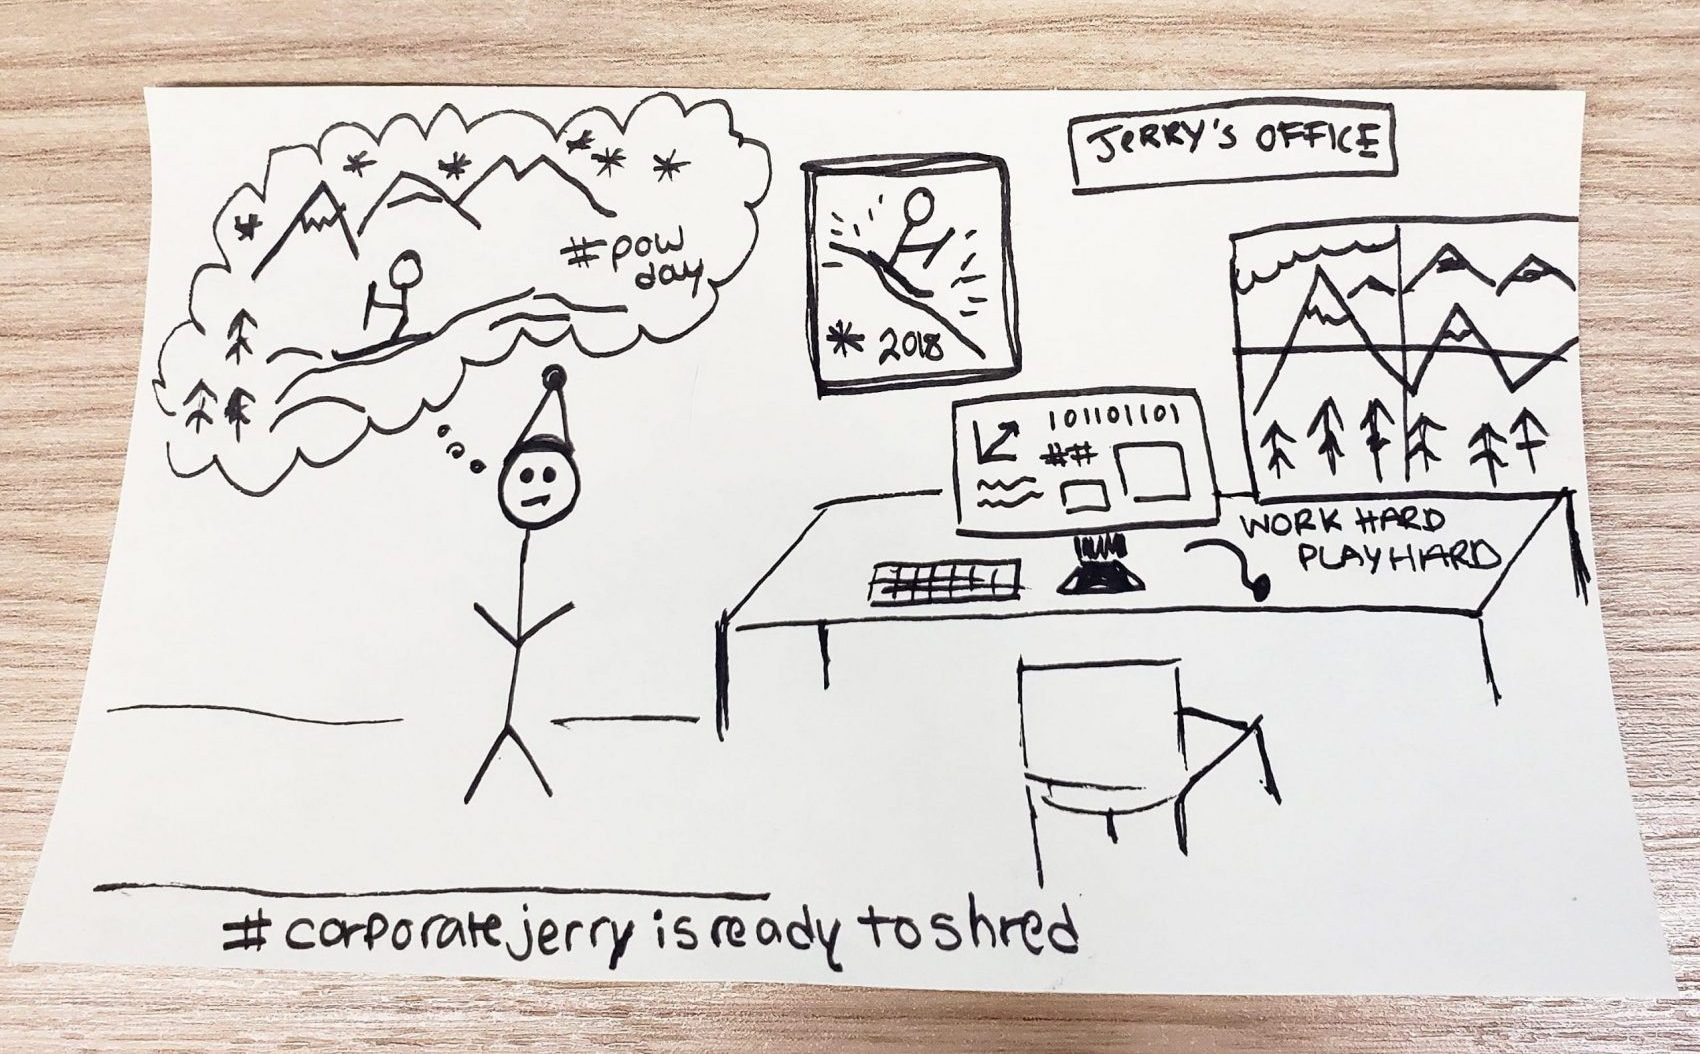 JERRY'S OFFICE
#pow
day
* 2018
101101101
##
WORK HARD
PLAY HARD
#corporatejerryisreadytoshred